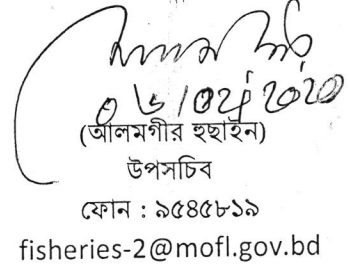 (আলমগীর হুছাইন)
উপসচিব
ফোন : ৯৫৪৫৮১৯
fisheries-2@mofl.gov.bd